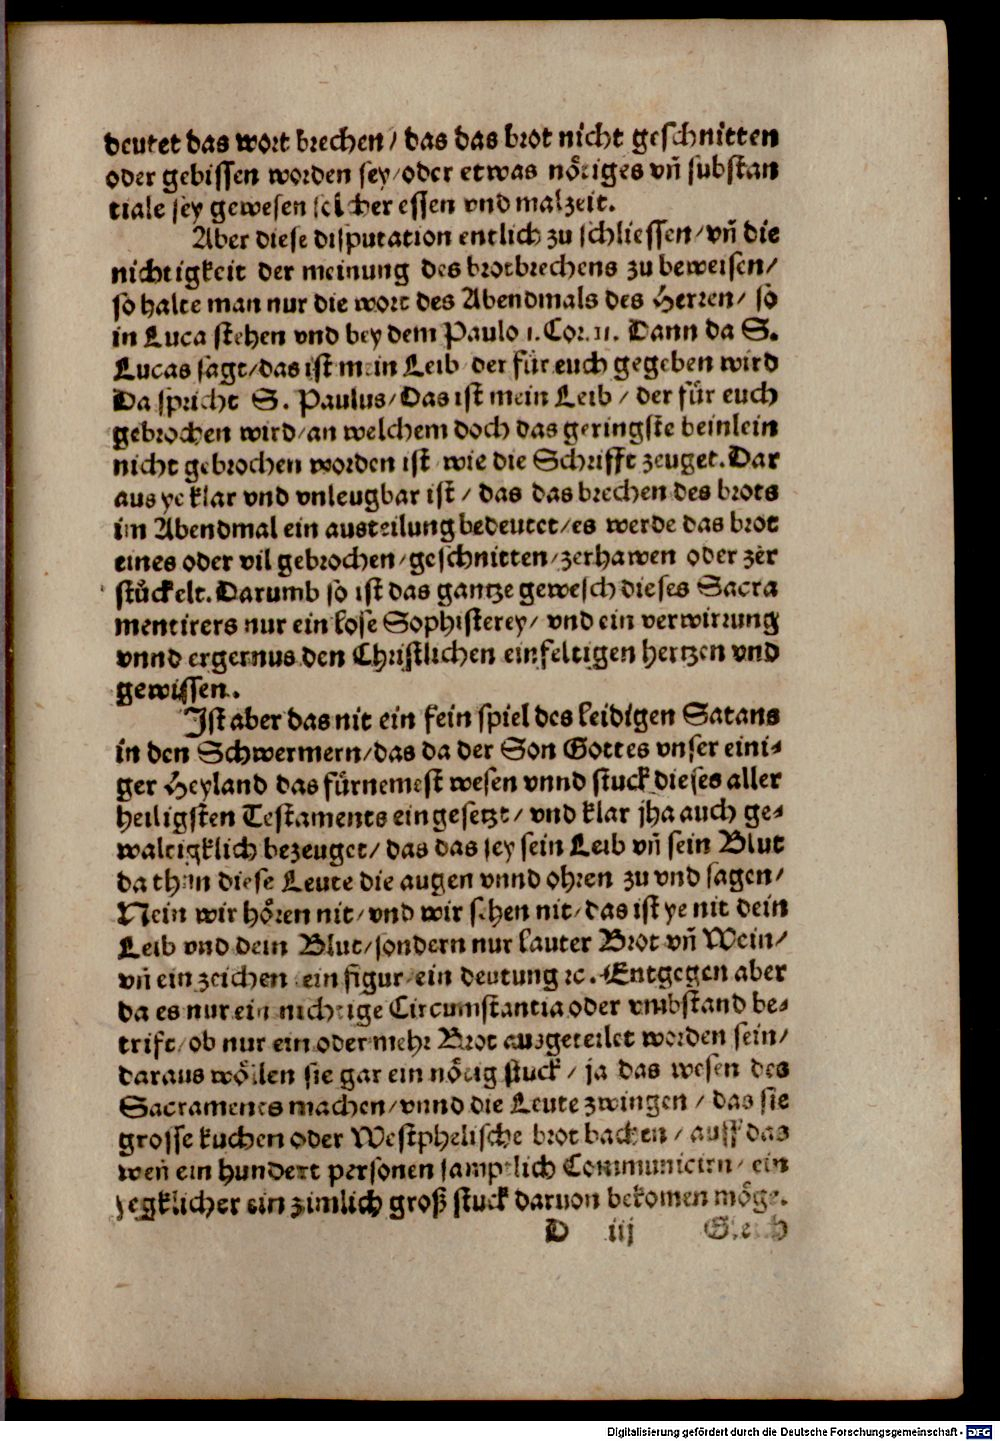 deutet das wort brechen / das das brot nicht geschnitten
oder gebissen worden sey / oder etwas nötiges vn̄ substan
tiale sey gewesen solcher essen vnd malzeit.
Aber diese disputation entlich zu schliessen / vn̄ die
nichtigkeit der meinung des brotbrechens zu beweisen /
so halte man nur die wort des Abendmals des Herren / so
in Luca stehen vnd bey dem Paulo 1. Cor. 11. Dann da S.
Lucas sagt / das ist mein Leib der für euch gegeben wird
Da spricht S. Paulus / Das ist mein Leib / der für euch
gebrochen wird / an welchem doch das geringste beinlein
nicht gebrochen worden ist wie die Schrifft zeuget. Dar
aus ye klar vnd vnleugbar ist / das das brechen des brots
im Abendmal ein austeilung bedeutet / es werde das brot
eines oder vil gebrochen / geschnitten / zerhawen oder zer
stückelt. Darumb so ist das gantze gewesch dieses Sacra
mentirers nur ein lose Sophisterey / vnd ein verwirrung
vnnd ergernus den Christlichen einfeltigen hertzen vnd
gewissen.
Ist aber das nit ein fein spiel des leidigen Satans
in den Schwermern / das da der Son Gottes vnser eini⸗
ger Heyland das fürnemest wesen vnnd stuck dieses aller
heiligsten Testaments eingesetzt / vnd klar jha auch ge⸗
waltigklich bezeuget / das das sey sein Leib vn̄ sein Blut
da thun diese Leute die augen vnnd ohren zu vnd sagen /
Nein wir hören nit / vnd wir sehen nit / das ist ye nit dein
Leib vnd dein Blut / sondern nur lauter Brot vn̄ Wein /
vn̄ ein zeichen ein figur / ein deutung ꝛc. Entgegen aber
da es nur ein nichtige Circumstantia oder vmbstand be⸗
trift / ob nur ein oder mehr Brot ausgeteilet worden sein /
daraus wöllen sie gar ein nötig stuck / ja das wesen des
Sacraments machen / vnnd die Leute zwingen / das sie
grosse kuchen oder Westphelische brot backen / auff das
wen̄ ein hundert personen samptlich Communicirn / ein
yegklicher ein zimlich groß stuck daruon bekomen möge.
D iij Gleich
Digitalisierung gefördert durch die Deutsche Forschungsgemeinschaft - DFG